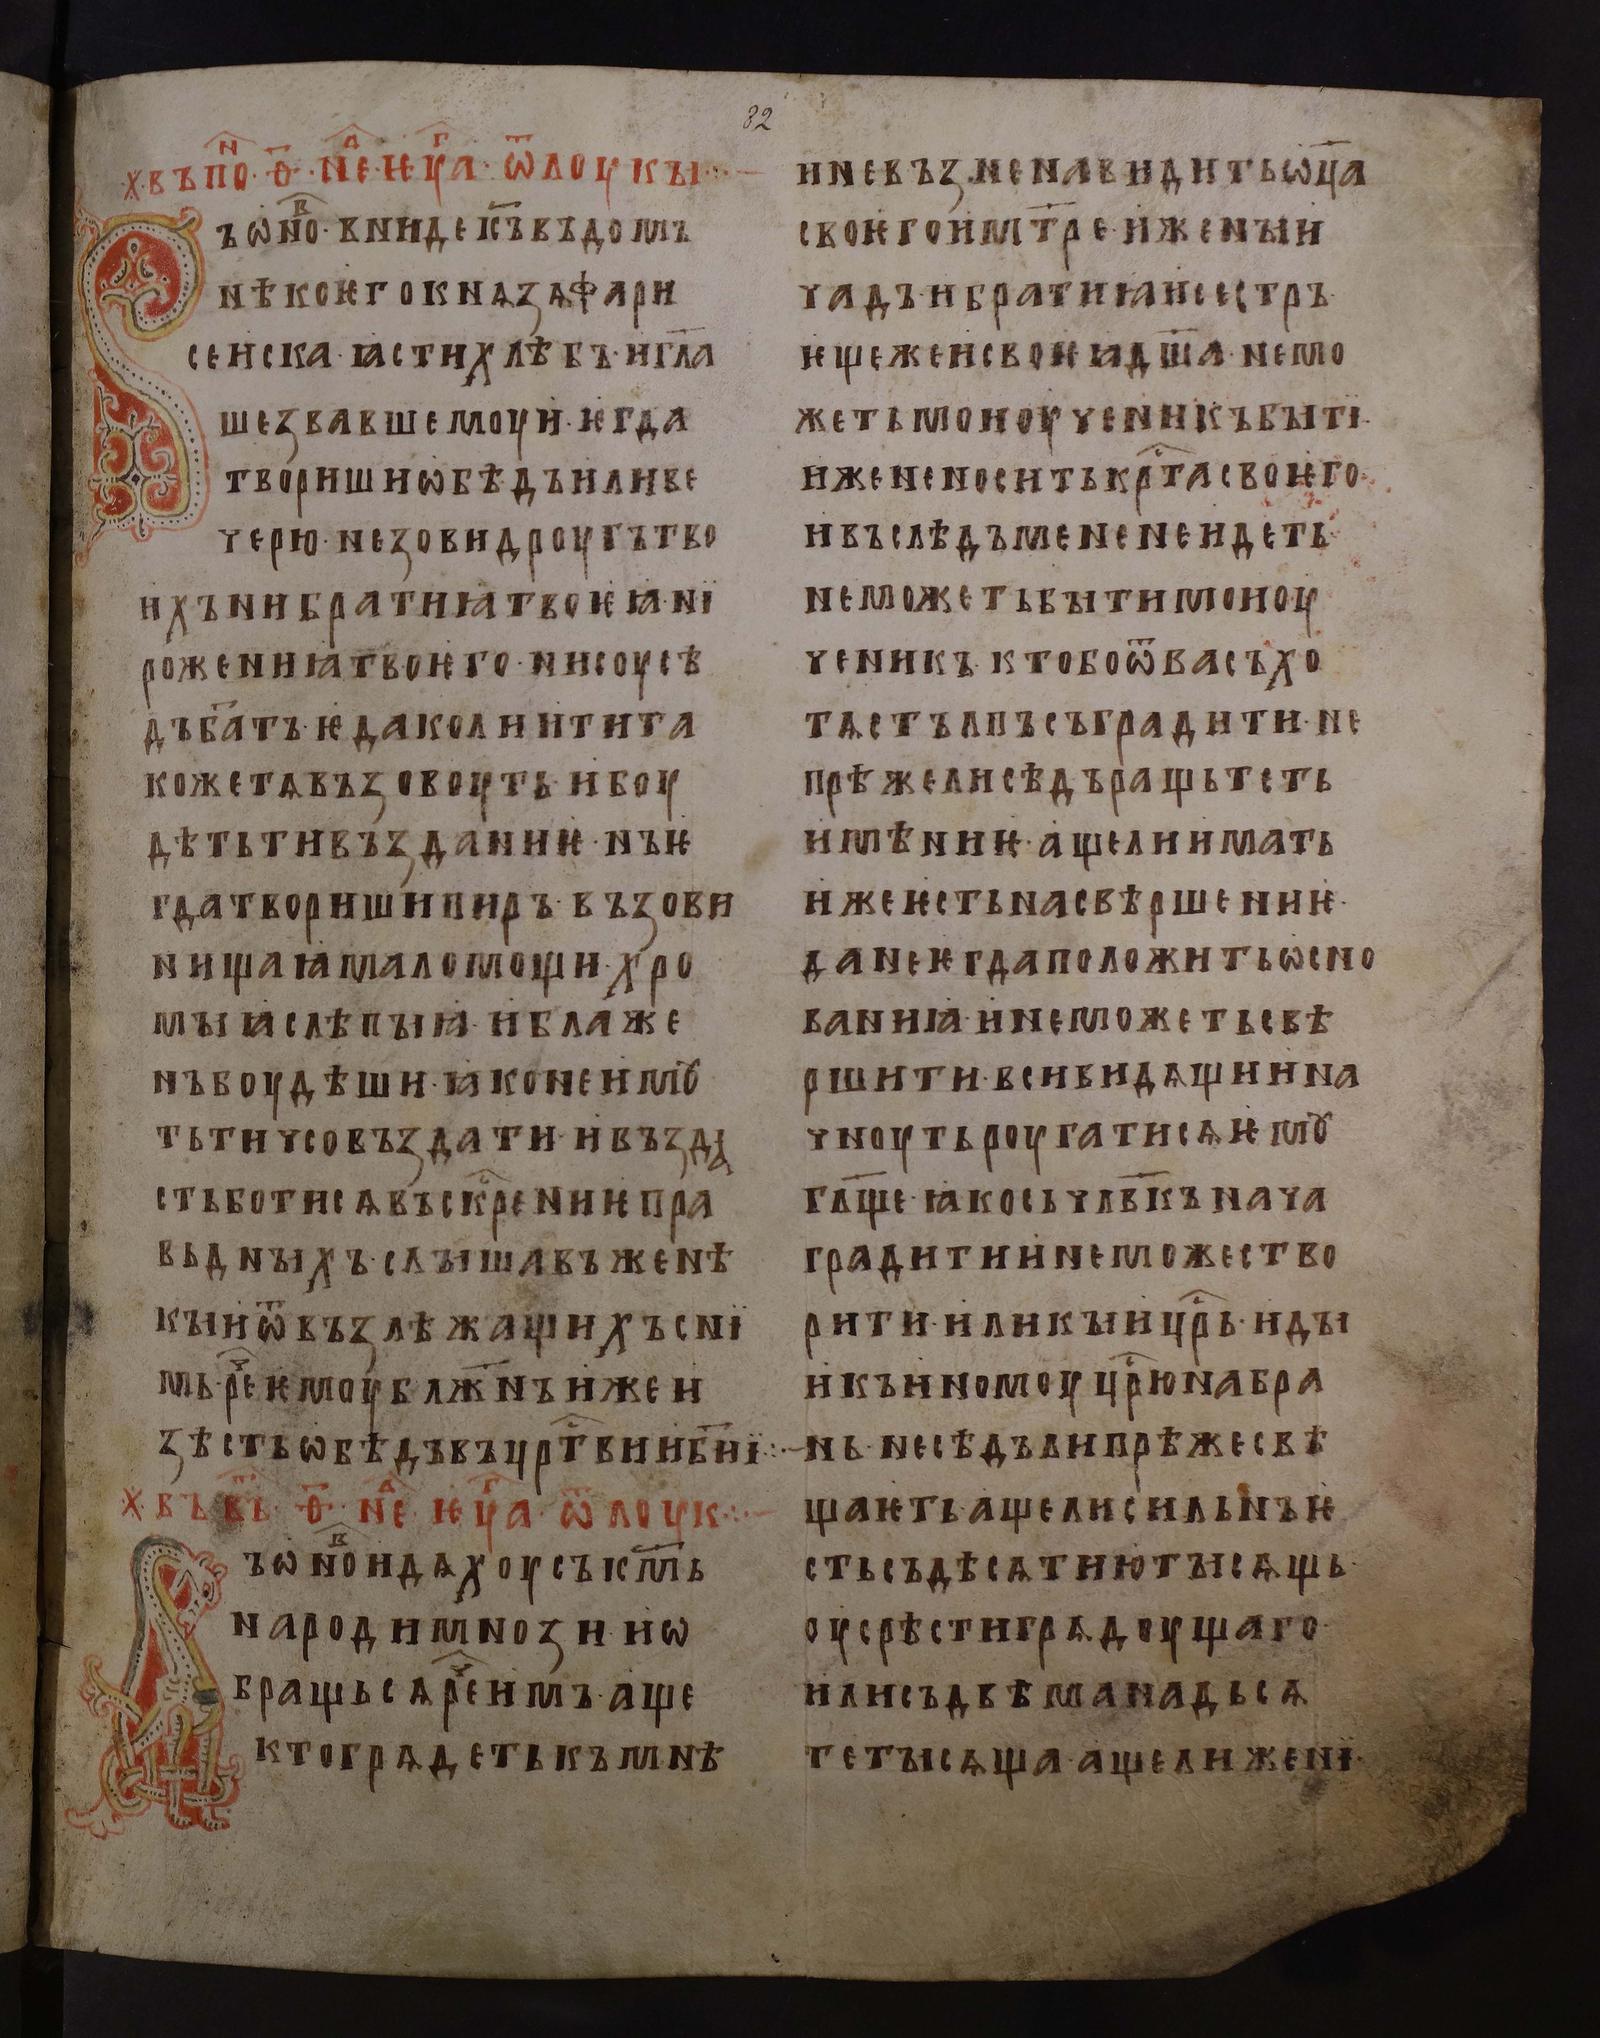 82
х въ по҃н · ѳ҃ · не҃д · ѥу҃га · ѿ лоукꙑ ·:·
ъ ѡно · в҃ниде іс҃ъ въ домъ
нѣкоѥго кнѧꙁѧ фари
сеиска · ꙗсти хлѣбъ · и гл҃а
ше ꙁвавшемоу и · ѥгда
твориши ѡбѣдъ или ве
черю · не ꙁови дроугъ тво
ихъ ни братиꙗ твоѥꙗ · нї
рожениꙗ твоѥго · ни соусѣ
дъ ба҃тъ · ѥда коли и ти та
коже тѧ въꙁовоуть · и боу
дѣть ти въꙁданиѥ · нъ ѥ
гда твориши пиръ · въꙁови
нищаꙗ маломощи · хро
мыꙗ слѣпыꙗ · и блаже
нъ боудѣши · ꙗко не имꙋ
ть ти чсо въꙁдати · и въꙁдѧ
сть бо ти сѧ въ скр҃ениѥ пра
вьдныхъ · слышавъ же нѣ
кыи ѿ въꙁлѣжащихъ с нї
мь · ре҃ч ѥмоу бл҃жнъ иже и
ꙁѣсть ѡбѣдъ въ цр҃твии б҃нї ·:·
х въ в҃ı · ѳ҃ · не҃д ѥу҃га · ѿ лоук ·:·
ъ ѡно идѧхоу съ іс҃мь
народи мноꙁи · и ѡ
бращьсѧ ре҃ч имъ · аще
кто грѧдеть къ мнѣ
и не въꙁненавидить ѡц҃а
своѥго и мт҃ре · и жены и
чадъ · и братиꙗ и сестръ ·
ѥще же и своѥꙗ дш҃а · не мо
жеть мои оученикъ быті ·
иже не носить кр҃та своѥго ·
и въслѣдъ мене не идеть ·
не можеть быти мои оу
ченикъ · кто бо ѿ васъ хо
тѧ стълпъ съградити · не
прѣже ли сѣдъ ращьтеть
имѣниѥ · аще ли имать
иже ѥсть на свѣршениѥ ·
да не ѥгда положить ѡсно
ваниꙗ · и не можеть съвѣ
ршити · вси видѧщии на
чноуть роугати сѧ ѥмꙋ
гл҃ще · ꙗко сь чл҃вкъ нача
градити и не може ство
рити · или кыи цр҃ь · иды
и къ иномоу цр҃ю на бра
нь · не сѣдъ ли прѣже свѣ
щаѥть · аще ли сильнъ ѥ
сть съ дѣсѧтию тысѧщь ·
оусрѣсти грѧдоущаго ·
или съ двѣма надьсѧ
те тысѧща · аще ли же нї ·